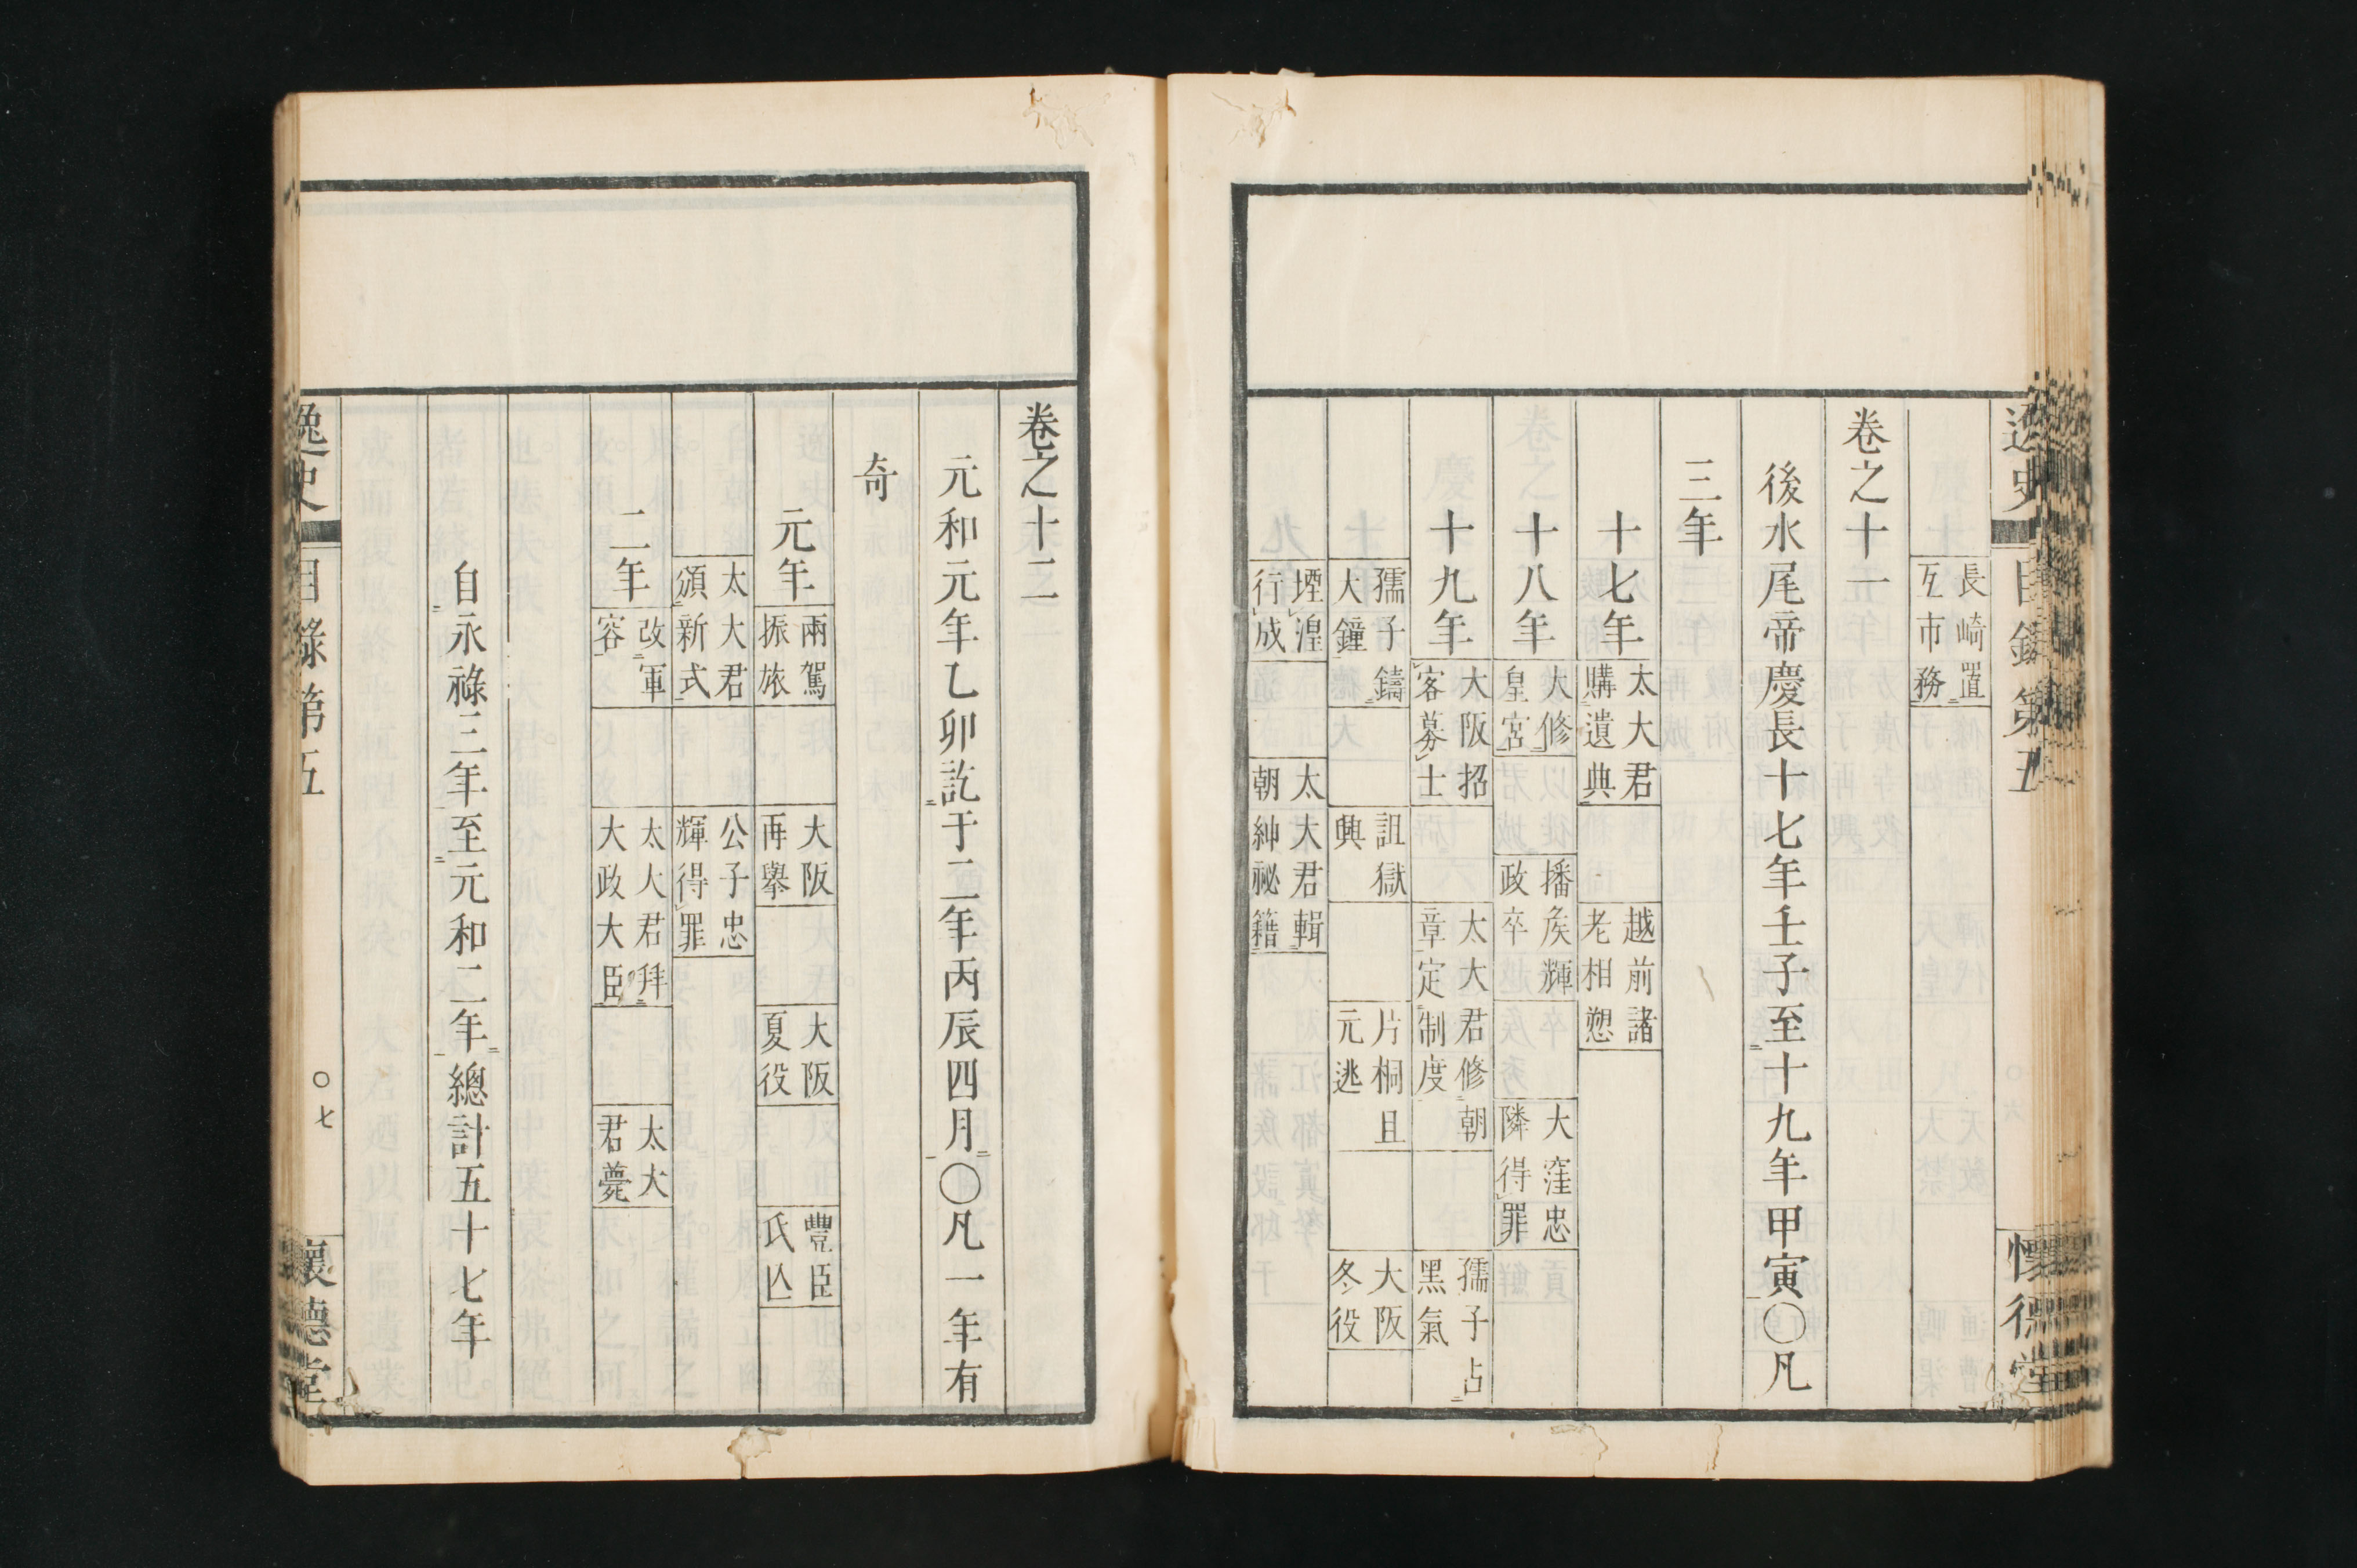 逸史 目錄第五 懷德堂
長崎置
互市務
卷之十一
後水尾帝慶長十七年壬子至十九年甲寅〇凡
三年
十七年 太大君 購遺典 越前諸 老相愬
十八年 大修 皇宮 播矦輝 政卒 大窪忠 隣得罪
十九年 大阪招 客募士 太大君修朝 章定制度 孺子占 黑氣
孺子鑄 大鐘 詛獄 興 片桐且 元逃 大阪 冬役
堙湟 行成 太大君輯 朝紳祕籍
卷之十二
元和元年乙卯訖于二年丙辰四月〇凡一年有
奇
元年 兩駕 振旅 大阪 再擧 大阪 夏役 豐臣 氏亾
太大君 頒新式 公子忠 輝得罪
二年 改軍 容 太大君拜 大政大臣 太大 君薨
自永祿三年至元和二年總計五十七年
逸史 目錄第五 〇七 懷德堂